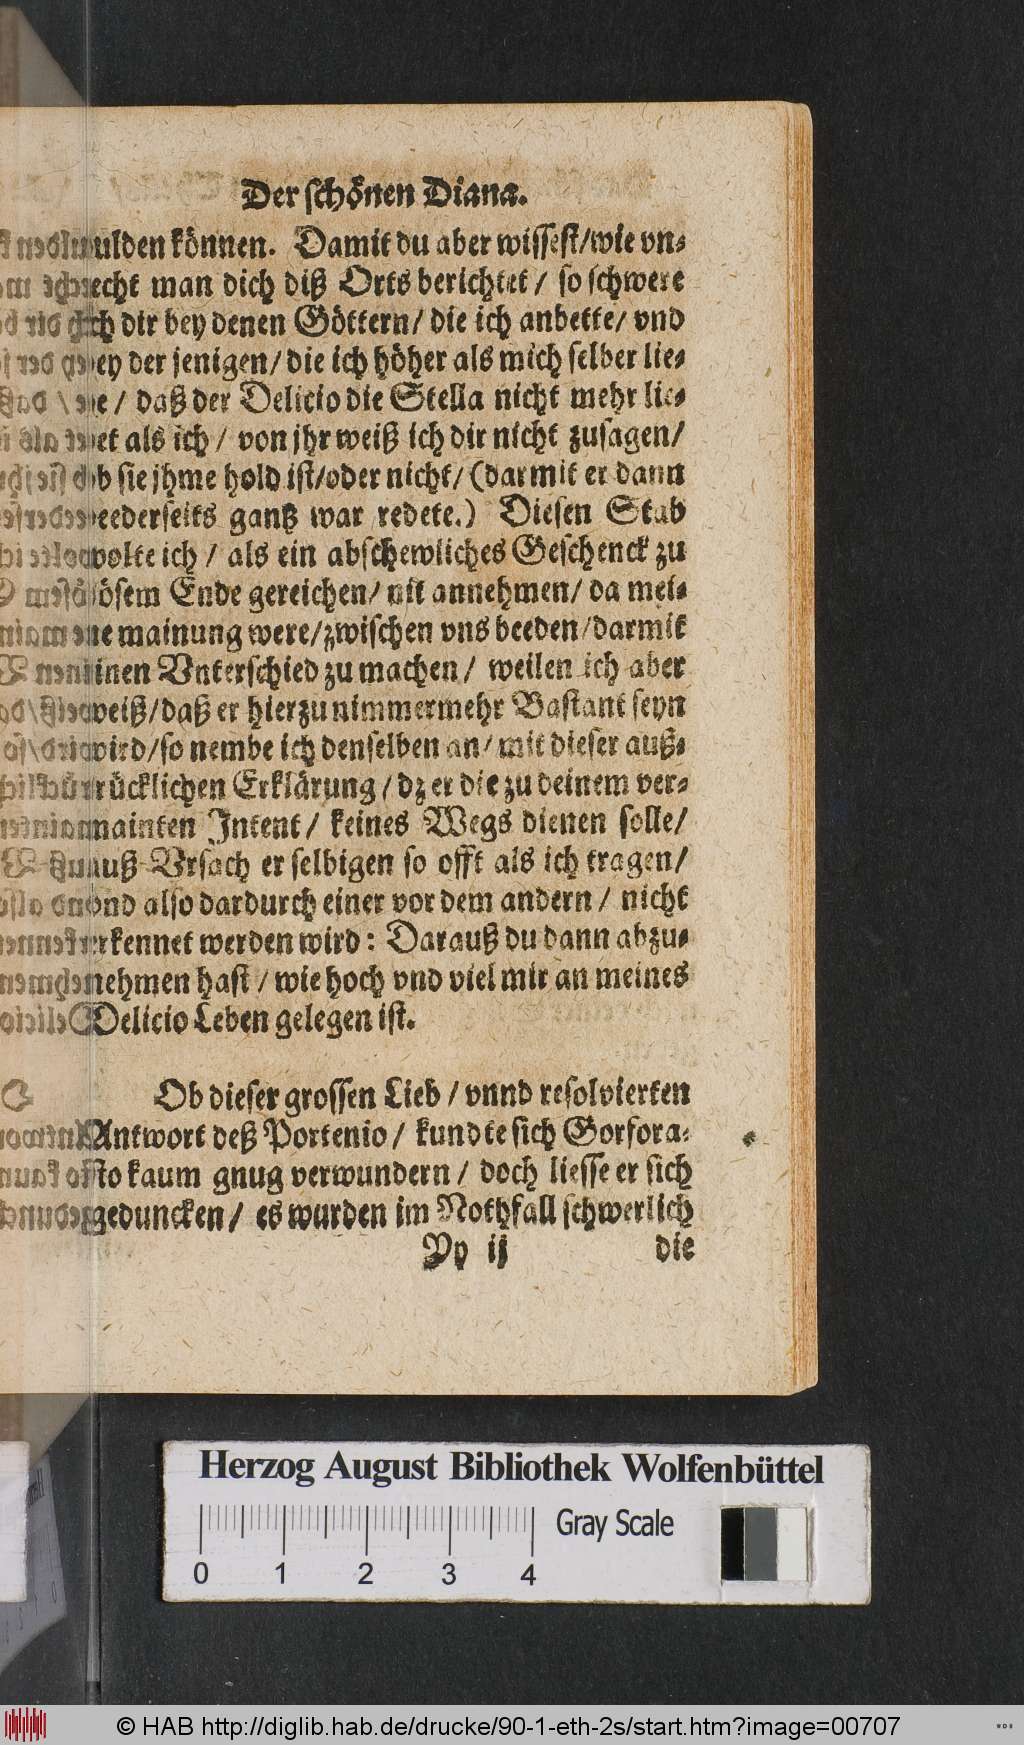 Der schönen Diana.
ulden können. Damit du aber wissest/wie vn-
recht man dich diß Orts berichtet / so schwere
ich dir bey denen Göttern/ die ich anbette/ vnd
bey der jenigen/ die ich höher als mich selber lie-
be / daß der Delicio die Stella nicht mehr lie-
bet als ich / von jhr weiß ich dir nicht zusagen/
ob sie jhme hold ist/oder nicht/ (darmit er dann
beederseits gantz war redete.) Diesen Stab
wolte ich / als ein abschewliches Geschenck zu
bösem Ende gereichen/ nit annehmen/ da mei-
ne mainung were/zwischen vns beeden/darmit
einen Vnterschied zu machen/ weilen ich aber
weiß/daß er hierzu nimmermehr Bastant seyn
wird/so nembe ich denselben an/ mit dieser auß-
trücklichen Erklärung / dz er die zu deinem ver-
mainten Intent/ keines Wegs dienen solle/
auß Vrsach er selbigen so offt als ich tragen/
vnd also dardurch einer vor dem andern / nicht
erkennet werden wird: Darauß du dann abzu-
nehmen hast / wie hoch vnd viel mir an meines
Delicio Leben gelegen ist.
Ob dieser grossen Lieb / vnnd resolvierten
Antwort deß Portenio / kundte sich Gorfora-
sto kaum gnug verwundern / doch liesse er sich
geduncken/ es wurden im Nothfall schwerlich
Yy ij die
Herzog August Bibliothek Wolfenbüttel
Gray Scale
0 1 2 3 4
© HAB http://diglib.hab.de/drucke/90-1-eth-2s/start.htm?image=00707